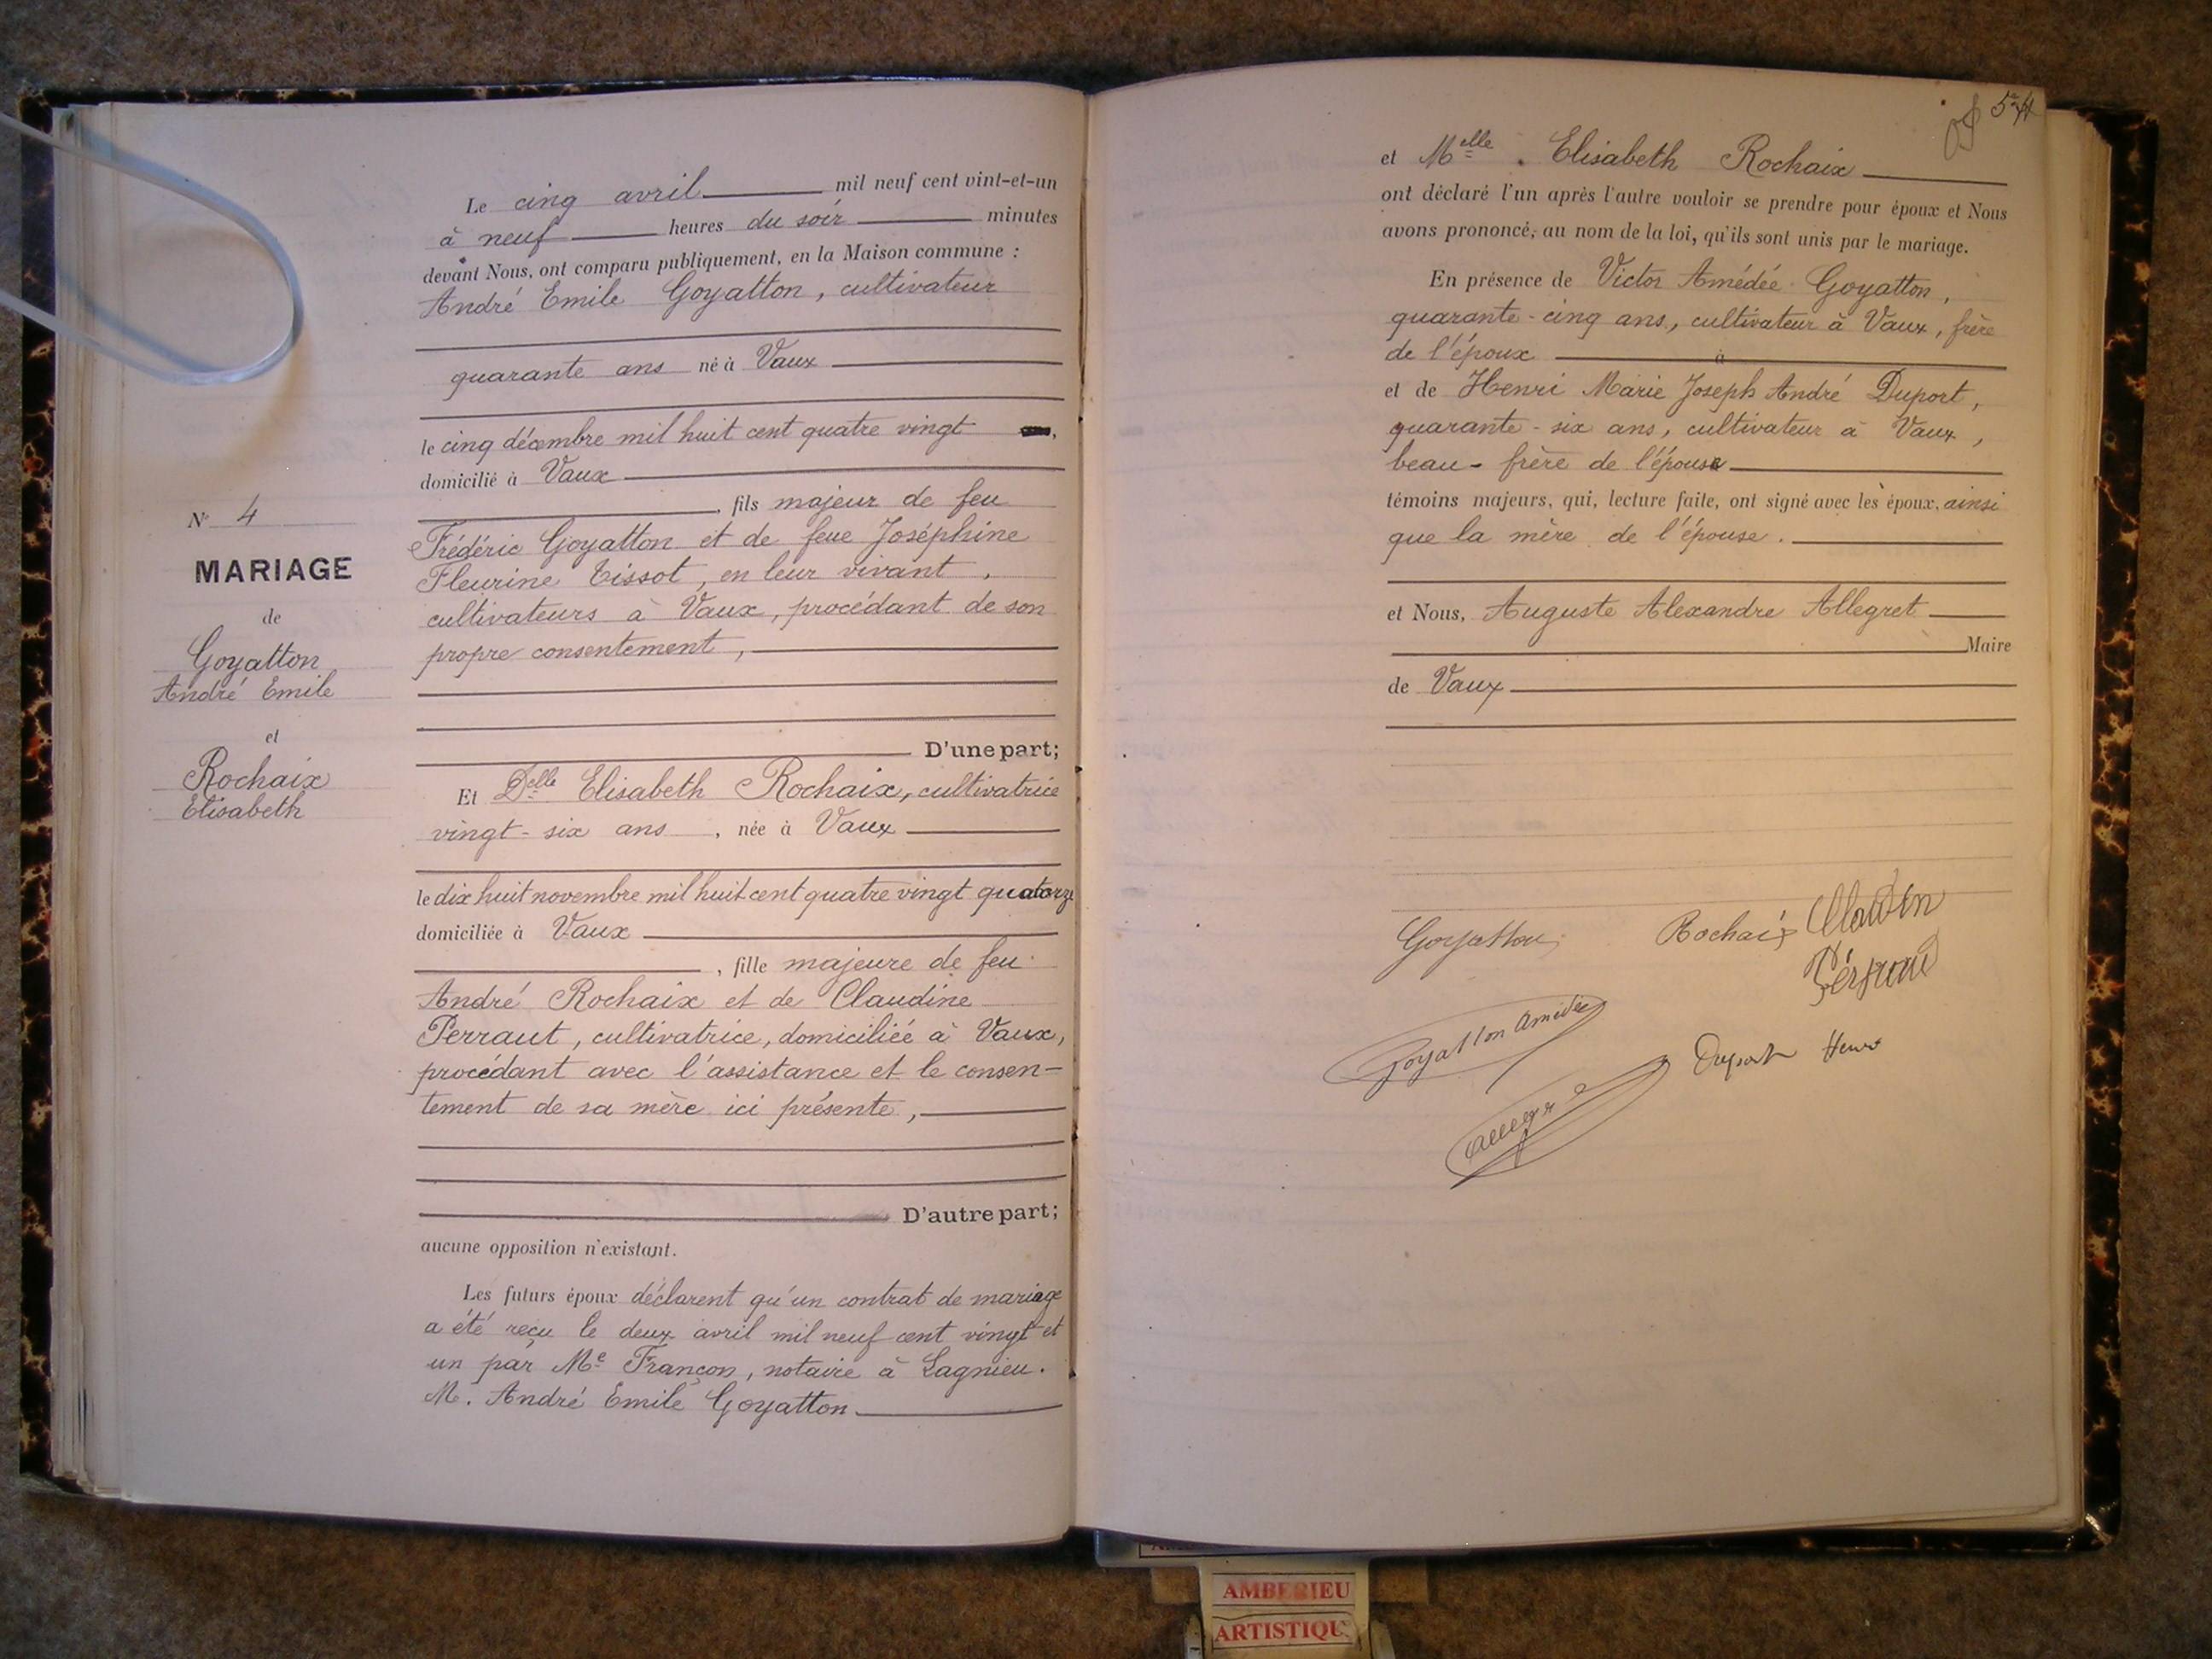 Le cinq avril mil neuf cent vint-et-un
à neuf heures du soir minutes
devant Nous, ont comparu publiquement, en la Maison commune :
André Emile Goyatton, cultivateur
quarante ans né à Vaux
le cinq décembre mil huit cent quatre vingt ,
domicilié à Vaux
, fils majeur de feu
Frédéric Goyatton et de feue Joséphine
Fleurine Tissot, en leur vivant,
cultivateurs à Vaux, procédant de son
propre consentement,
D'une part;
Et Delle Elisabeth Rochaix, cultivatrice
vingt-six ans, née à Vaux
le dix huit novembre mil huit cent quatre vingt quatorze
domiciliée à Vaux
, fille majeure de feu
André Rochaix et de Claudine
Perraut, cultivatrice, domiciliée à Vaux,
procédant avec l'assistance et le consen-
tement de sa mère ici présente,
D'autre part;
aucune opposition n'existant.
Les futurs époux déclarent qu'un contrat de mariage
a été reçu le deux avril mil neuf cent vingt et
un par Me Françon, notaire à Lagnieu.
M. André Emile Goyatton
No 4
MARIAGE
de
Goyatton
André Emile
et
Rochaix
Elisabeth
et Melle. Elisabeth Rochaix
ont déclaré l'un après l'autre vouloir se prendre pour époux et Nous
avons prononcé, au nom de la loi, qu'ils sont unis par le mariage.
En présence de Victor Amédée Goyatton,
quarante-cinq ans, cultivateur à Vaux, frère
de l'époux à
et de Henri Marie Joseph André Duport,
quarante-six ans, cultivateur à Vaux,
beau-frère de l'épouse
témoins majeurs, qui, lecture faite, ont signé avec les époux, ainsi
que la mère de l'épouse.
et Nous, Auguste Alexandre Allegret
Maire
de Vaux
Goyatton
Rochaix
Goyatton Amédée
Duport Henri
AMBERIEU
ARTISTIQU